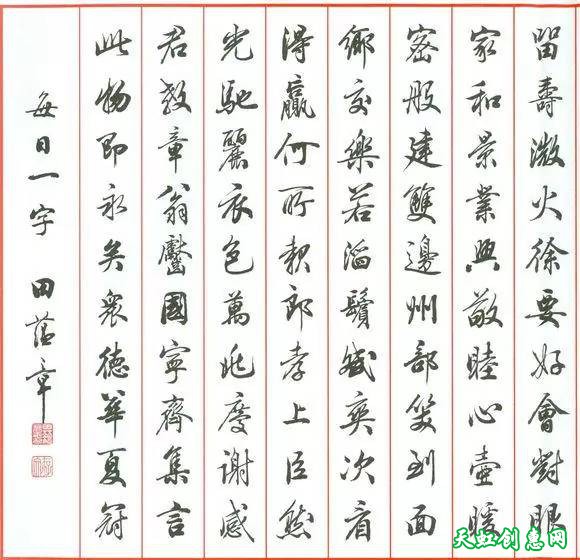 留壽激火徐要好會對眼
家和景業興敬睦心壺暖
密般建雙邊州部笑到面
鄉交樂若滔鬢賦爽次看
得贏何所報郎孝上臣然
光馳麗衣色萬兆慶謝感
君教章翁鑿國寧齊集言
此物即永矣眾德華夏冠
每日一字 田蕴章
天虹创惠网